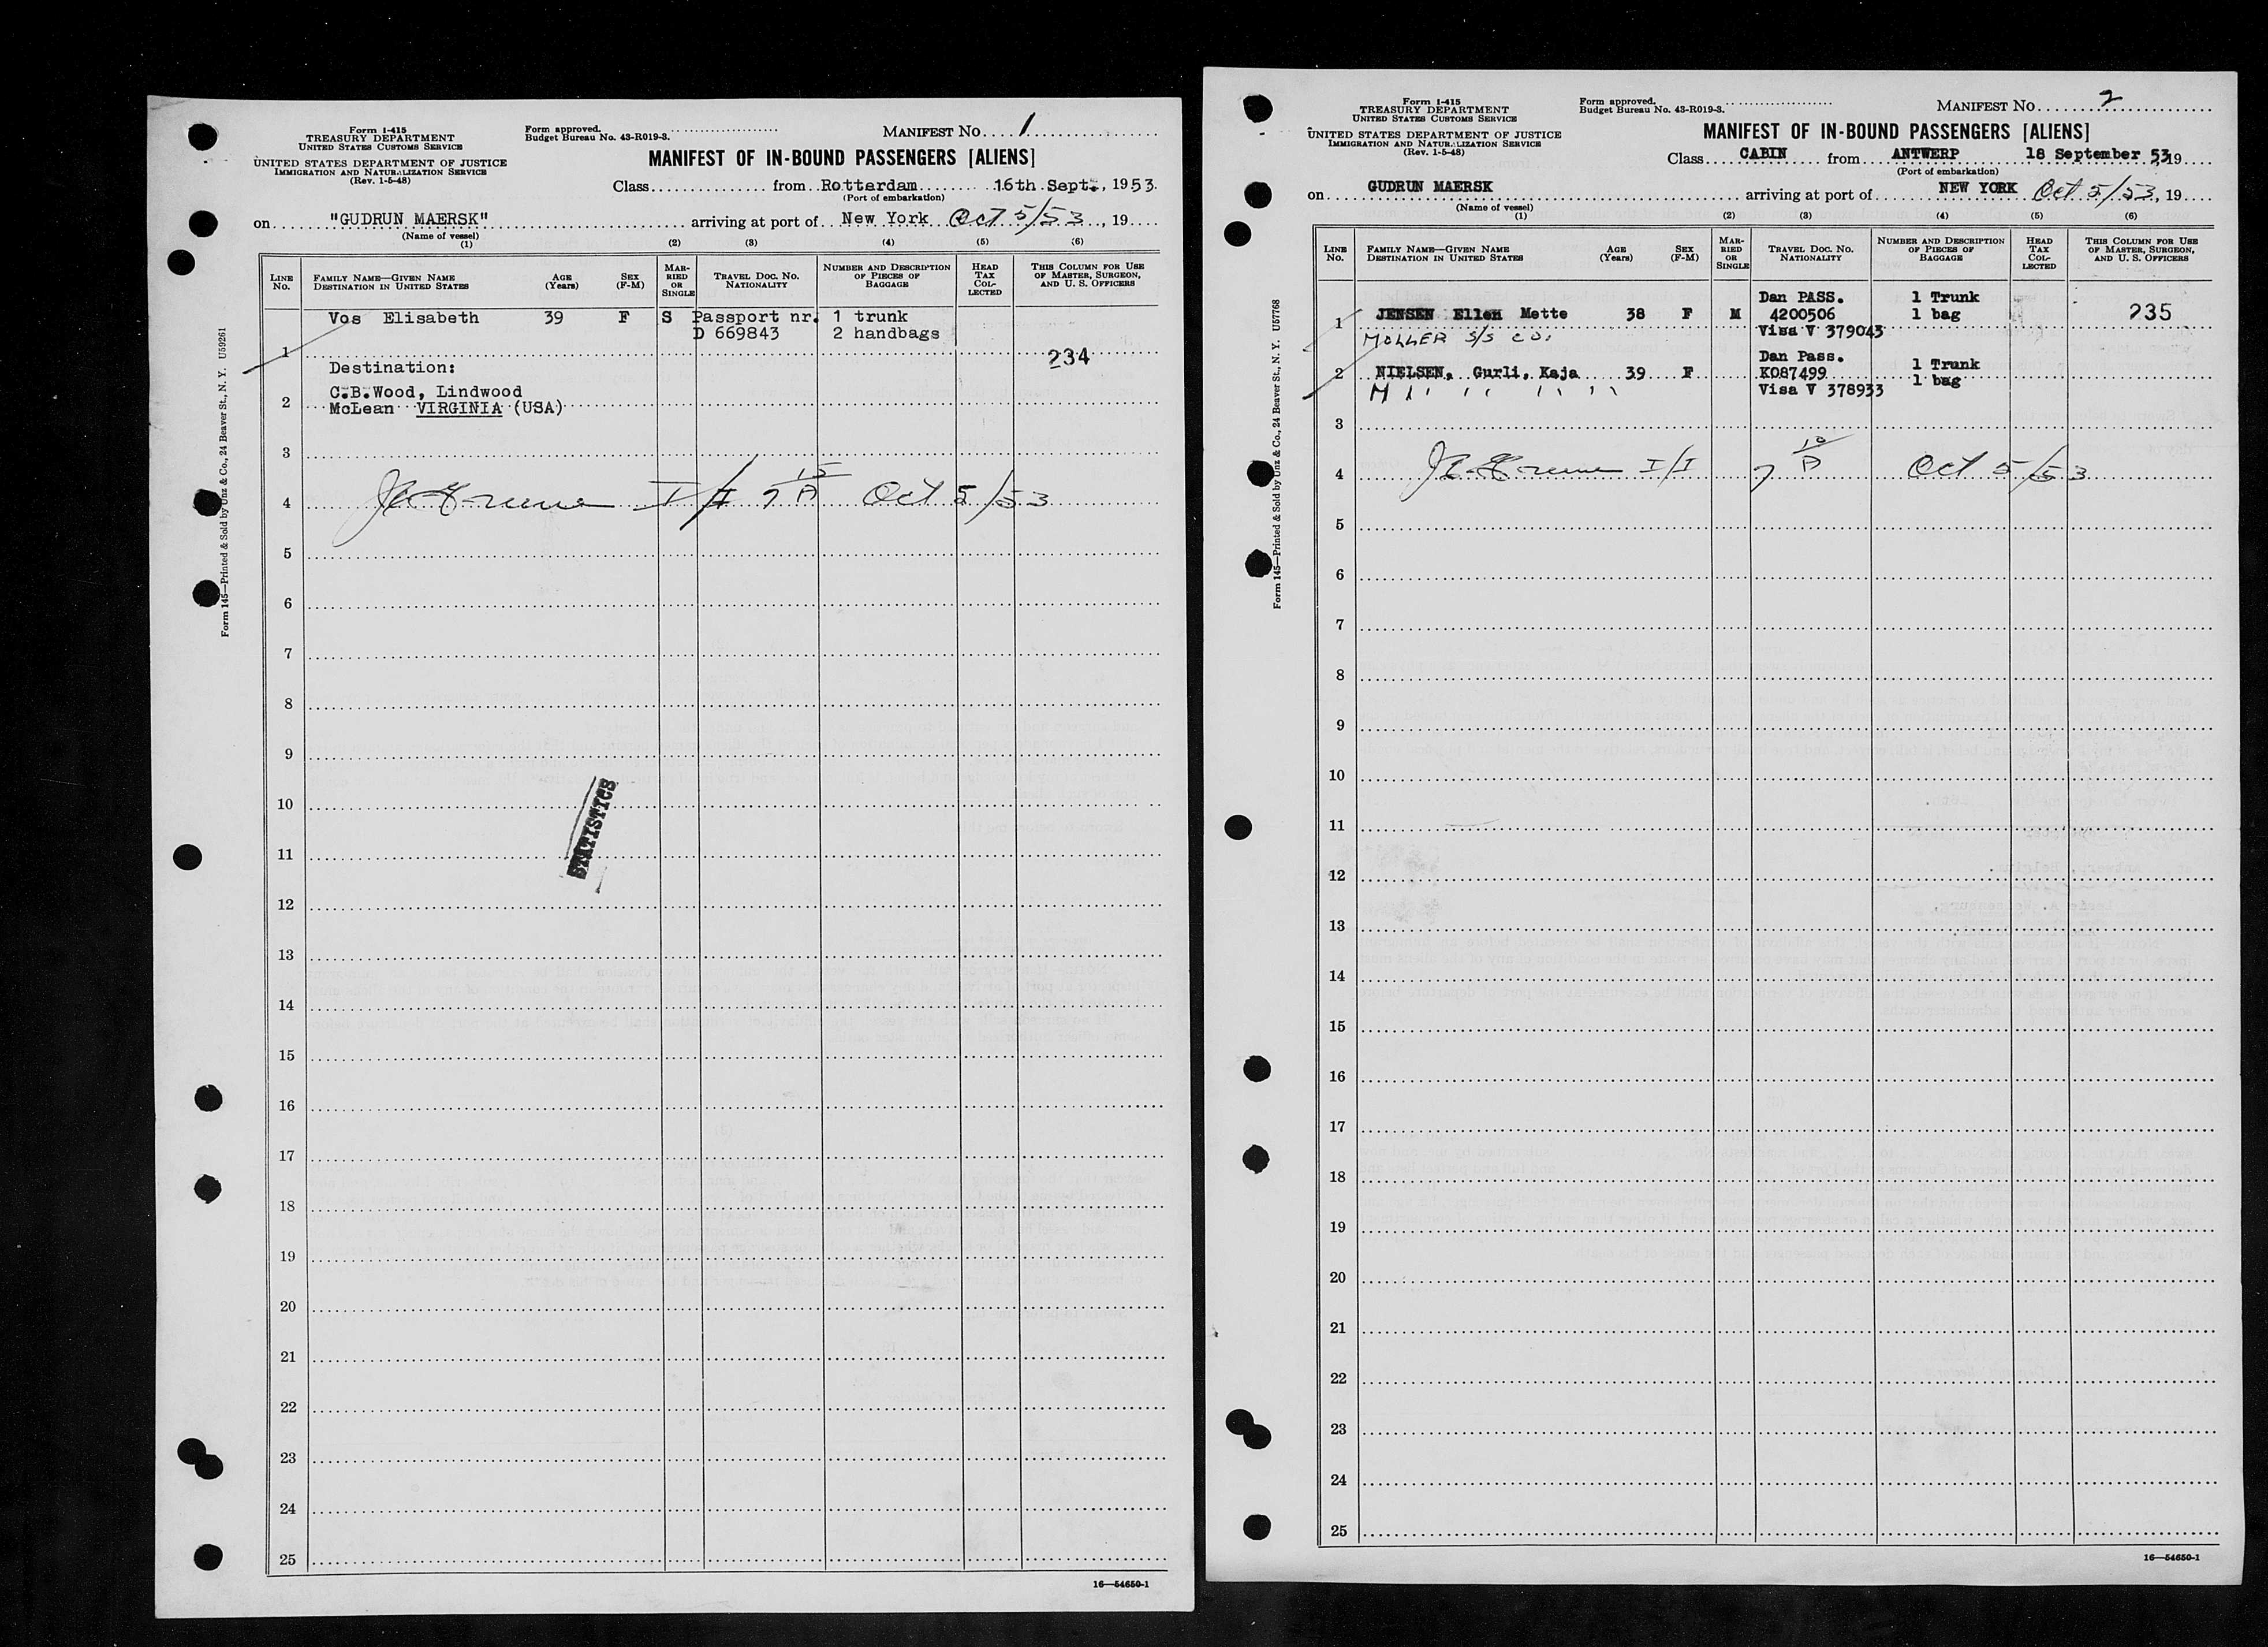 Form I-415
TREASURY DEPARTMENT
UNITED STATES CUSTOMS SERVICE
UNITED STATES DEPARTMENT OF JUSTICE
IMMIGRATION AND NATURALIZATION SERVICE
(Rev. 1-5-48)
Form approved.
Budget Bureau No. 43-R019-3.
MANIFEST No. 1
MANIFEST OF IN-BOUND PASSENGERS [ALIENS]
Class from Rotterdam 16th Sept., 1953.
(Port of embarkation)
on "GUDRUN MAERSK" arriving at port of New York Oct 5/53, 19
(Name of vessel)
(1) (2) (3) (4) (5) (6)
LINE No.
FAMILY NAME—GIVEN NAME
DESTINATION IN UNITED STATES
AGE (Years)
SEX (F-M)
MARRIED OR SINGLE
TRAVEL DOC. NO. NATIONALITY
NUMBER AND DESCRIPTION OF PIECES OF BAGGAGE
HEAD TAX COLLECTED
THIS COLUMN FOR USE OF MASTER, SURGEON, AND U. S. OFFICERS
Vos Elisabeth 39 F S Passport nr. 1 trunk
D 669843 2 handbags
1 234
Destination:
C.B.Wood, Lindwood
2 McLean VIRGINIA (USA)
3
4 I/I Oct 5/53
5
6
7
8
9
10
11
12
13
14
15
16
17
18
19
20
21
22
23
24
25
STATISTICS
16—54650-1
Form 145—Printed & Sold by Unz & Co., 24 Beaver St., N. Y. U59261
Form I-415
TREASURY DEPARTMENT
UNITED STATES CUSTOMS SERVICE
UNITED STATES DEPARTMENT OF JUSTICE
IMMIGRATION AND NATURALIZATION SERVICE
(Rev. 1-5-48)
Form approved.
Budget Bureau No. 43-R019-3.
MANIFEST No. 2
MANIFEST OF IN-BOUND PASSENGERS [ALIENS]
Class CABIN from ANTWERP 18 September 53, 19
(Port of embarkation)
on GUDRUN MAERSK arriving at port of NEW YORK Oct 5/53, 19
(Name of vessel)
(1) (2) (3) (4) (5) (6)
LINE No.
FAMILY NAME—GIVEN NAME
DESTINATION IN UNITED STATES
AGE (Years)
SEX (F-M)
MARRIED OR SINGLE
TRAVEL DOC. NO. NATIONALITY
NUMBER AND DESCRIPTION OF PIECES OF BAGGAGE
HEAD TAX COLLECTED
THIS COLUMN FOR USE OF MASTER, SURGEON, AND U. S. OFFICERS
Dan PASS. 1 Trunk
1 JENSEN Ellen Mette 38 F M 4200506 1 bag 235
MOLLER S/S CO. Visa V 379043
Dan Pass. 1 Trunk
2 NIELSEN, Gurli, Kaja 39 F K087499 1 bag
M " " " " Visa V 378933
3
4 I/I Oct 5/53
5
6
7
8
9
10
11
12
13
14
15
16
17
18
19
20
21
22
23
24
25
16—54650-1
Form 145—Printed & Sold by Unz & Co., 24 Beaver St., N. Y. U57768